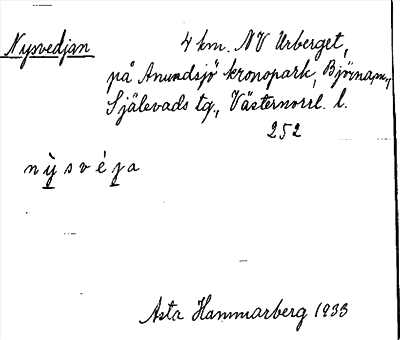 Nysvedjan 4 km. NV Urberget,
på Anundsjö kronopark, Björna sn,
Själevads tg., Västernorrl. l.
252
nỳsvéja
Asta Hammarberg 1933